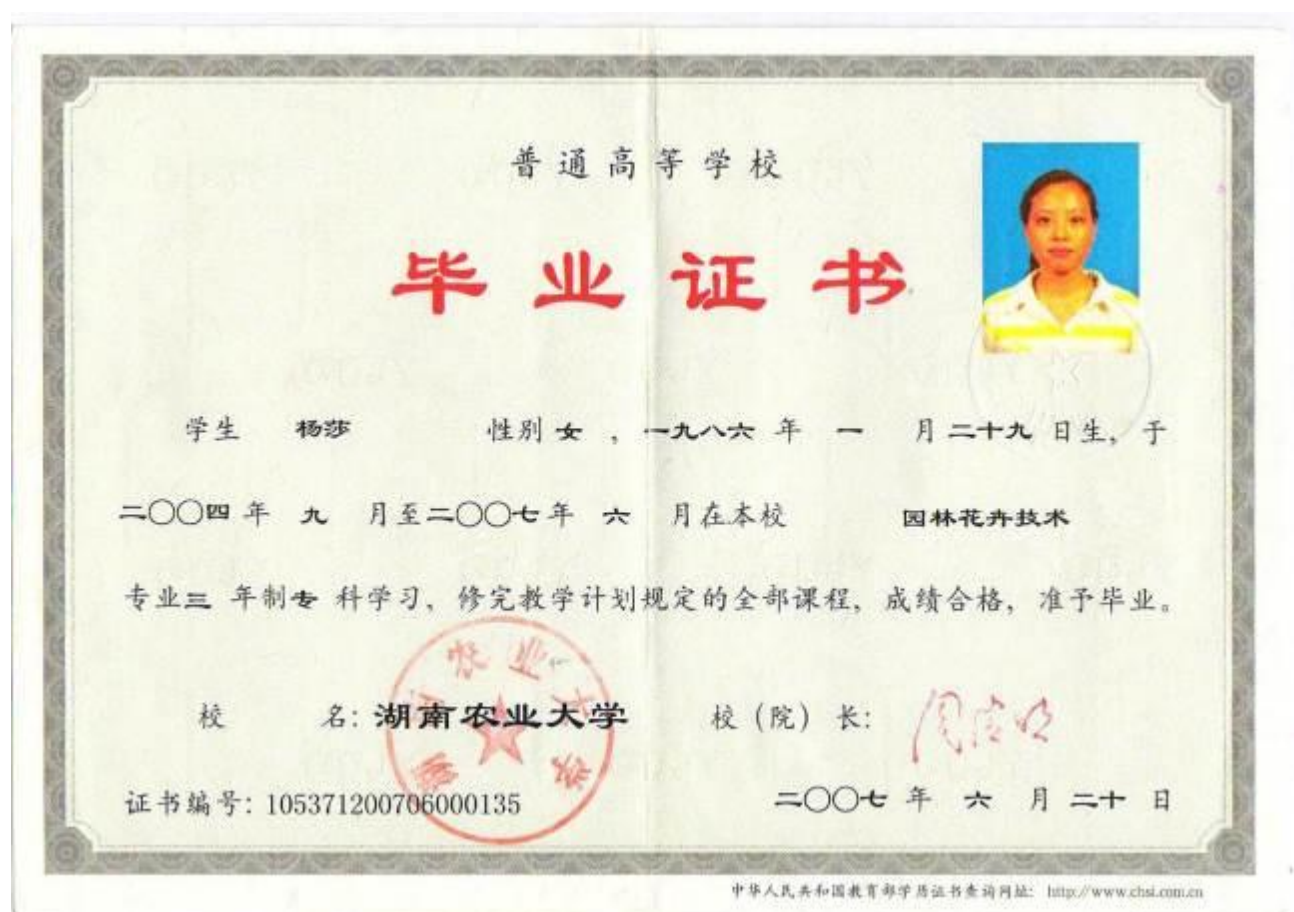 普通高等学校
毕业证书
学生 杨莎 性别 女 ,一九八六 年 一 月 二十九 日生, 于
二〇〇四 年 九 月至 二〇〇七 年 六 月在本校 园林花卉技术
专业 三 年制 专 科学习, 修完教学计划规定的全部课程, 成绩合格, 准予毕业。
湖南农业大学
校 名: 湖南农业大学 校(院)长:
证书编号: 105371200706000135 二〇〇七 年 六 月 二十 日
中华人民共和国教育部学历证书查询网址: http://www.chsi.com.cn